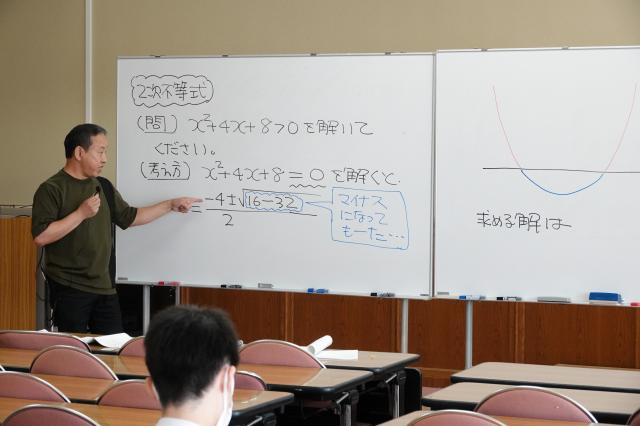 2次不等式
(問) x²+4x+8>0を解いて
ください。
(考え方) x²+4x+8=0を解くと、
= (-4±√16-32)/2
マイナス
になって
もーた…
求める解は